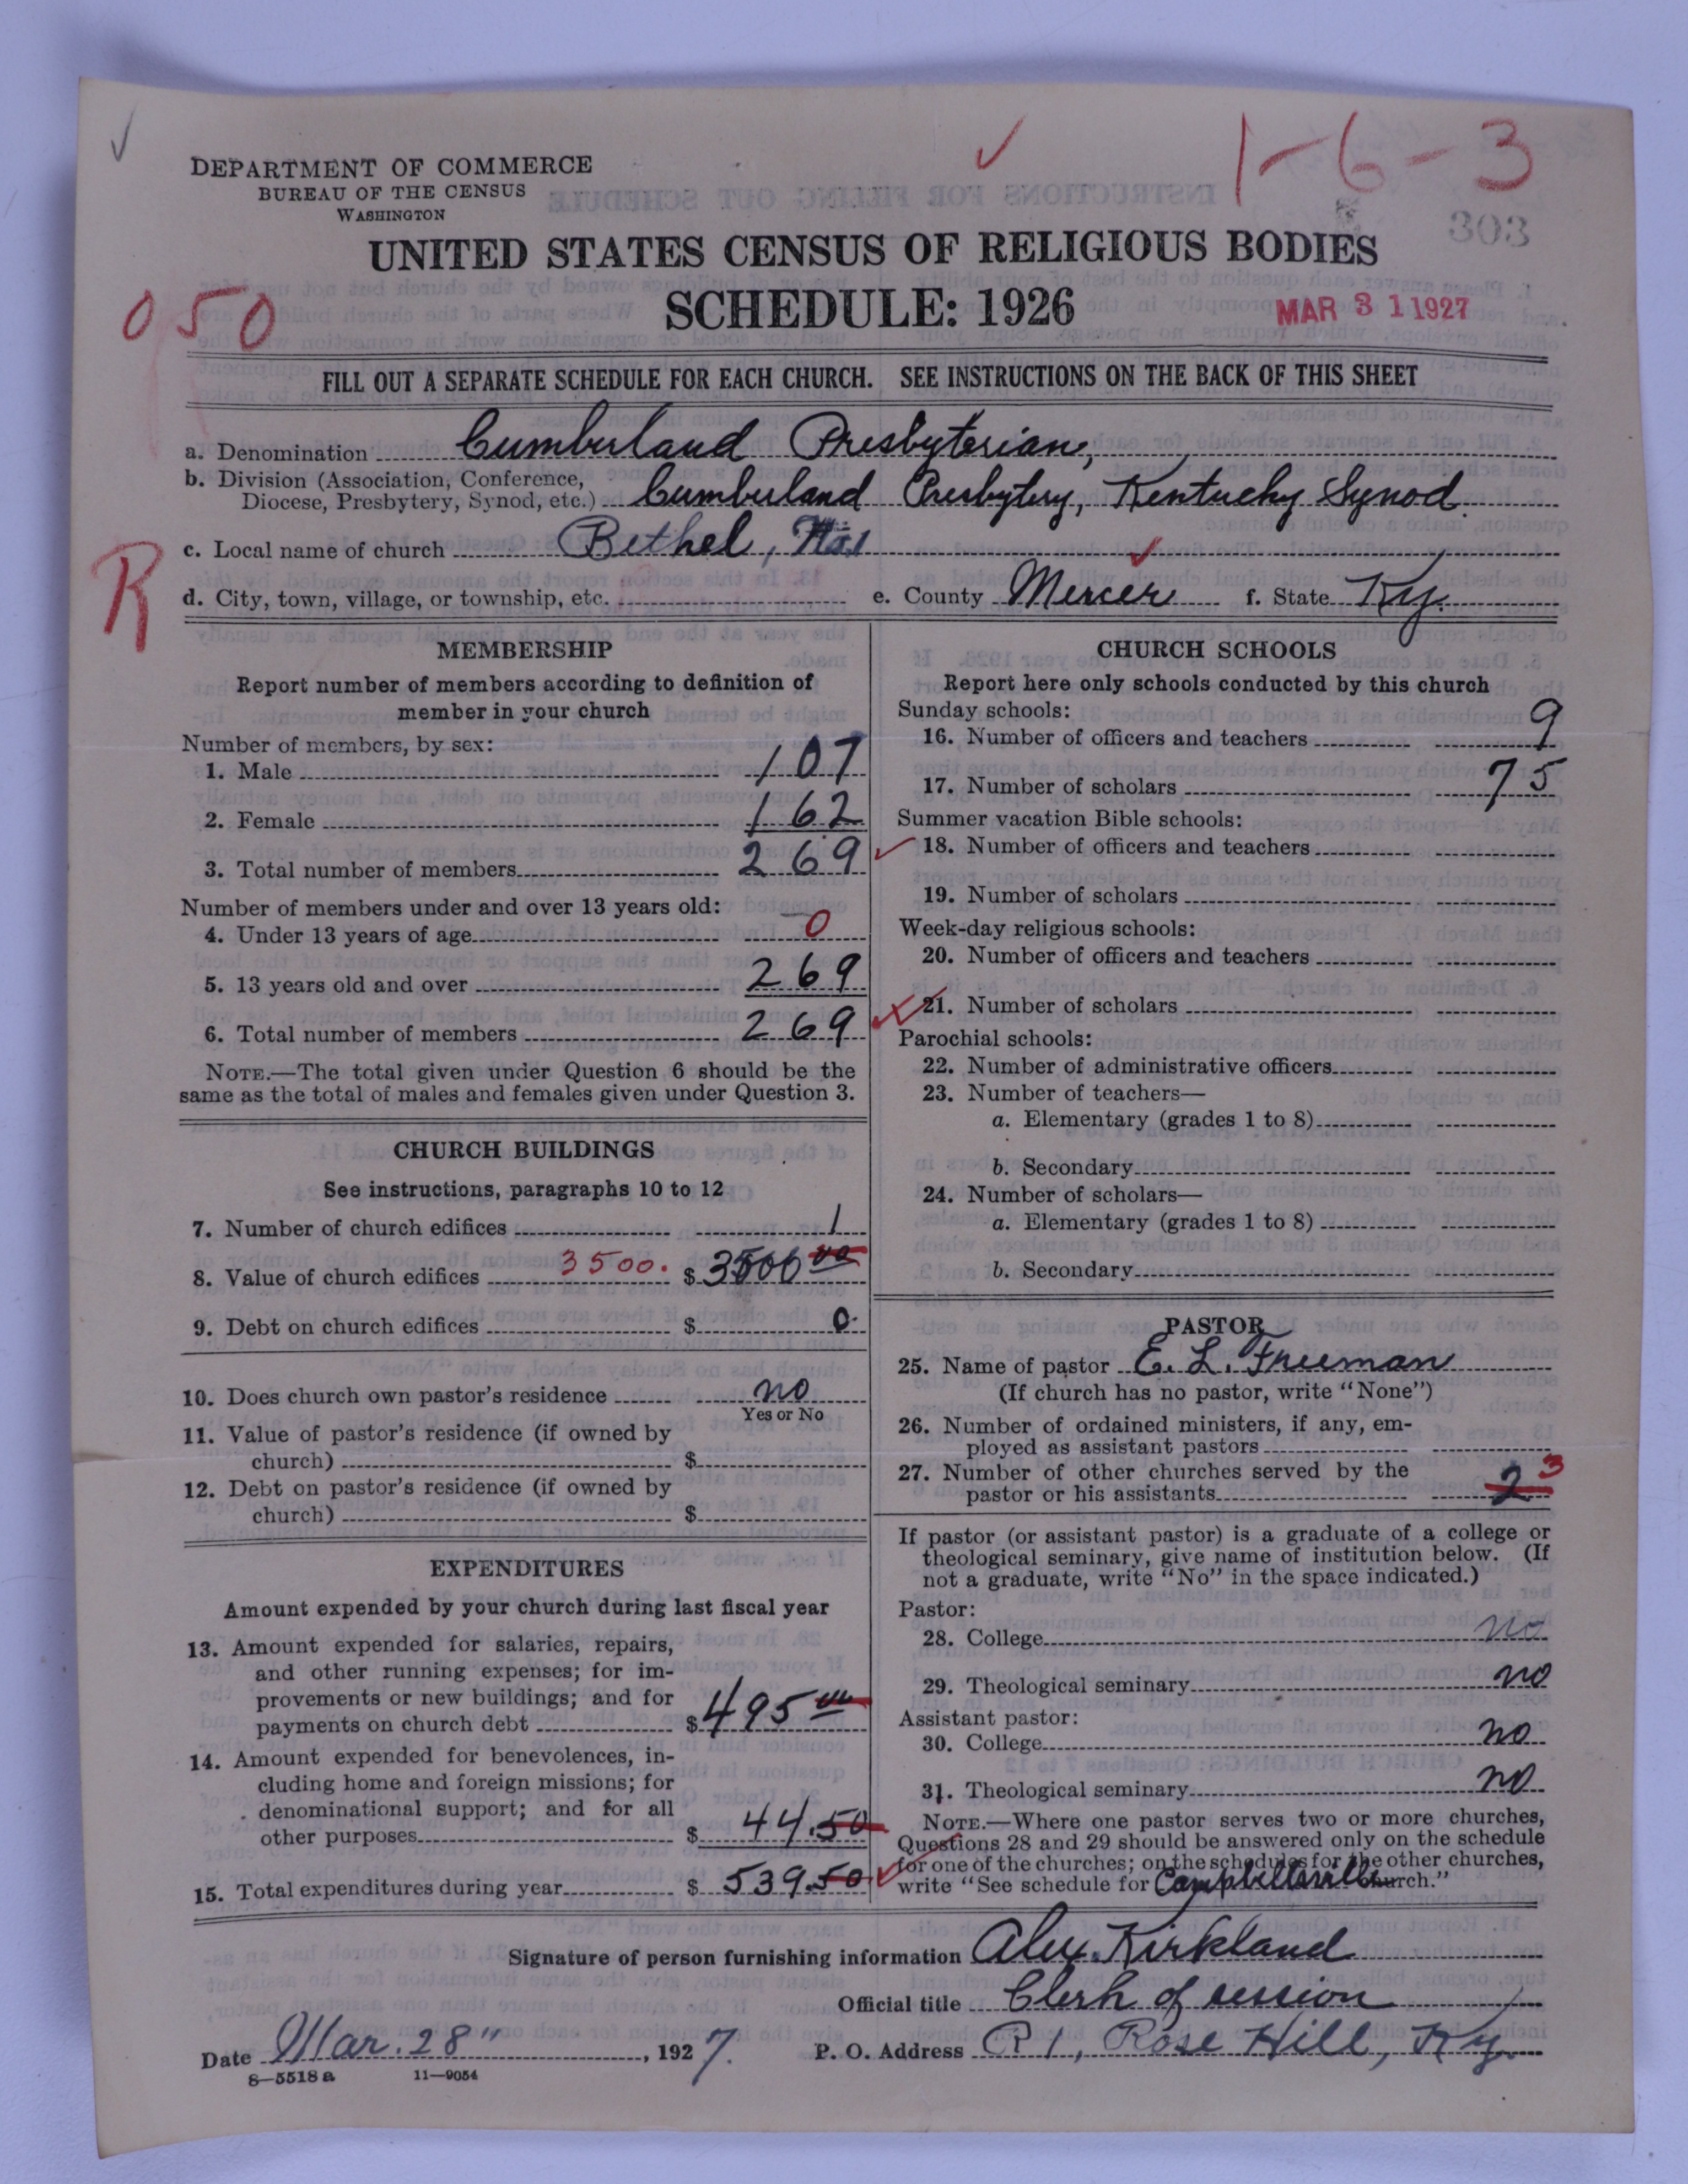 1-6-3
303
DEPARTMENT OF COMMERCE
BUREAU OF THE CENSUS
WASHINGTON
UNITED STATES CENSUS OF RELIGIOUS BODIES
SCHEDULE: 1926
MAR 31 1927
050
FILL OUT A SEPARATE SCHEDULE FOR EACH CHURCH. SEE INSTRUCTIONS ON THE BACK OF THIS SHEET
a. Denomination Cumberland Presbyterian,
b. Division (Association, Conference,
Diocese, Presbytery, Synod, etc.) Cumberland Presbytery, Kentucky Synod.
c. Local name of church Bethel, No 1
R
d. City, town, village, or township, etc. e. County Mercer f. State Ky.
MEMBERSHIP
Report number of members according to definition of
member in your church
Number of members, by sex:
1. Male 107
2. Female 162
3. Total number of members 269
Number of members under and over 13 years old:
4. Under 13 years of age 0
5. 13 years old and over 269
6. Total number of members 269
NOTE.—The total given under Question 6 should be the
same as the total of males and females given under Question 3.
CHURCH BUILDINGS
See instructions, paragraphs 10 to 12
7. Number of church edifices 1
8. Value of church edifices 3500. $ 3500 00
9. Debt on church edifices $ 0
10. Does church own pastor's residence no
Yes or No
11. Value of pastor's residence (if owned by
church) $
12. Debt on pastor's residence (if owned by
church) $
EXPENDITURES
Amount expended by your church during last fiscal year
13. Amount expended for salaries, repairs,
and other running expenses; for im-
provements or new buildings; and for
payments on church debt $ 495 00
14. Amount expended for benevolences, in-
cluding home and foreign missions; for
denominational support; and for all
other purposes $ 44.50
15. Total expenditures during year $ 539.50
CHURCH SCHOOLS
Report here only schools conducted by this church
Sunday schools:
16. Number of officers and teachers 9
17. Number of scholars 75
Summer vacation Bible schools:
18. Number of officers and teachers
19. Number of scholars
Week-day religious schools:
20. Number of officers and teachers
21. Number of scholars
Parochial schools:
22. Number of administrative officers
23. Number of teachers—
a. Elementary (grades 1 to 8)
b. Secondary
24. Number of scholars—
a. Elementary (grades 1 to 8)
b. Secondary
PASTOR
25. Name of pastor E. L. Freeman
(If church has no pastor, write "None")
26. Number of ordained ministers, if any, em-
ployed as assistant pastors
27. Number of other churches served by the
pastor or his assistants 2 3
If pastor (or assistant pastor) is a graduate of a college or
theological seminary, give name of institution below. (If
not a graduate, write "No" in the space indicated.)
Pastor:
28. College no
29. Theological seminary no
Assistant pastor:
30. College no
31. Theological seminary no
NOTE.—Where one pastor serves two or more churches,
Questions 28 and 29 should be answered only on the schedule
for one of the churches; on the schedules for the other churches,
write "See schedule for Campbellsville Church."
Signature of person furnishing information Alex. Kirkland
Official title Clerk of session
Date Mar. 28" , 1927. P. O. Address R 1, Rose Hill, Ky.
8—5518 a 11—9054